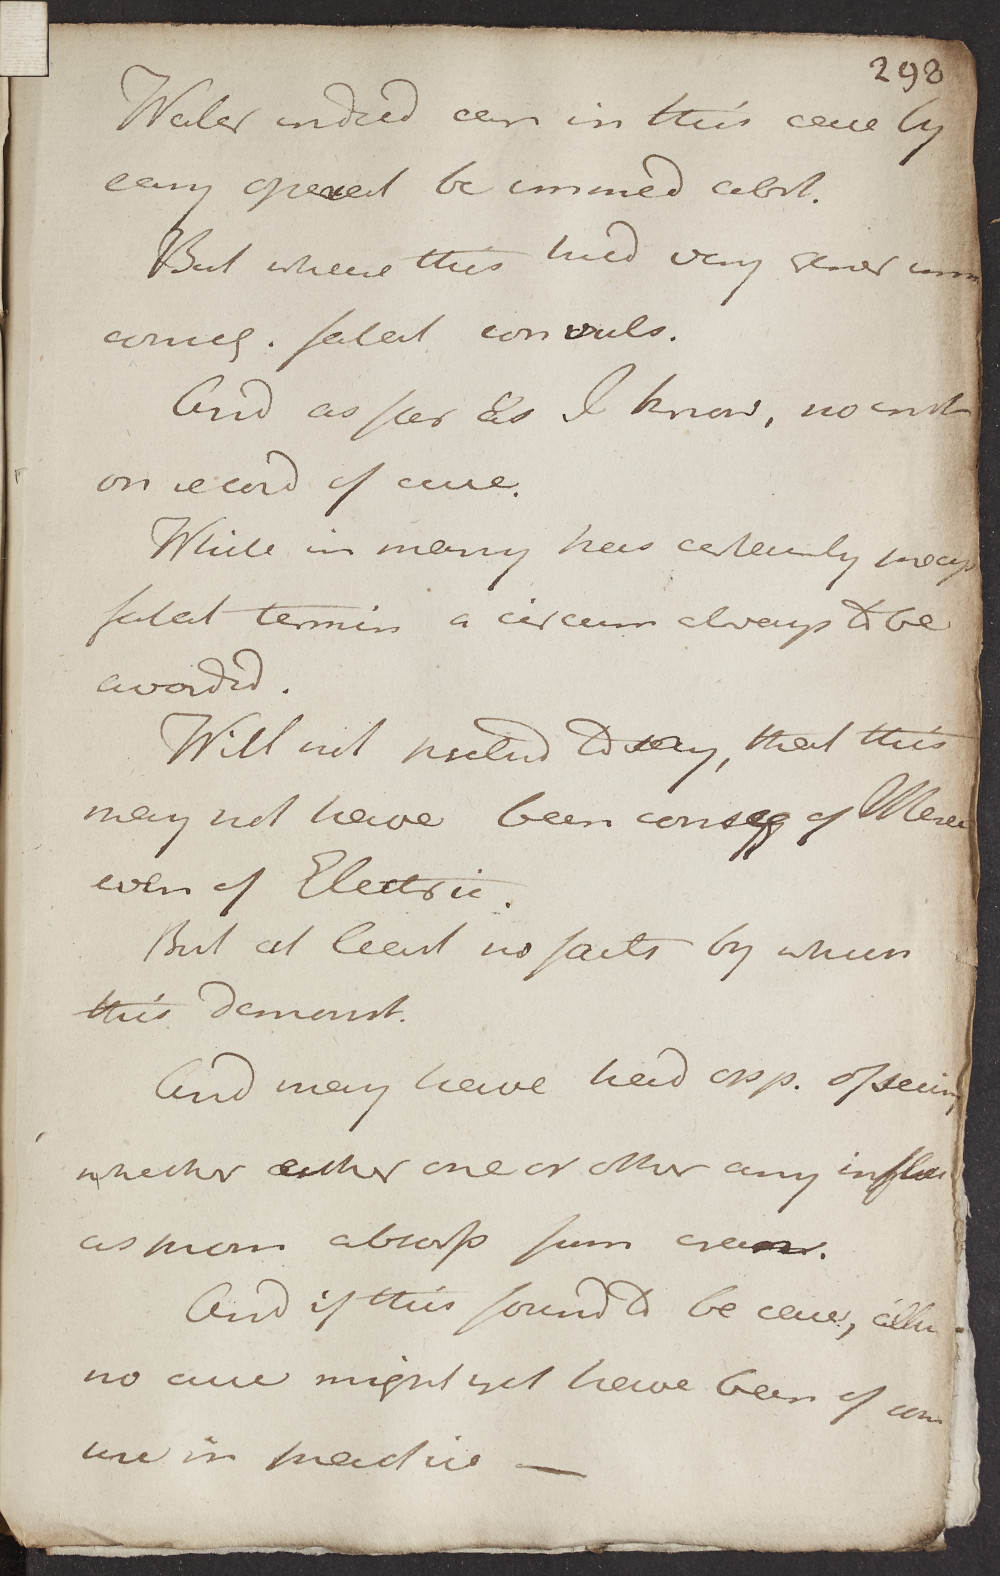 298
Water indeed can in this case by
easy operat be immed abst.
But where this tried very gener imm
conseq. fatal convuls.
And as far as I know, no inst
on record of cure.
While in many has certainly precip
fatal termin a circum always to be
avoided.
Will not pretend to say, that this
may not have been conseq of Merc
even of Electric.
But at least no facts by whch
this demonst.
And may have had opp. of seeing
whether either one or other any influ
as prom absorp from cran.
And if this found to be case, altho
no cure might yet have been of con
use in practice —